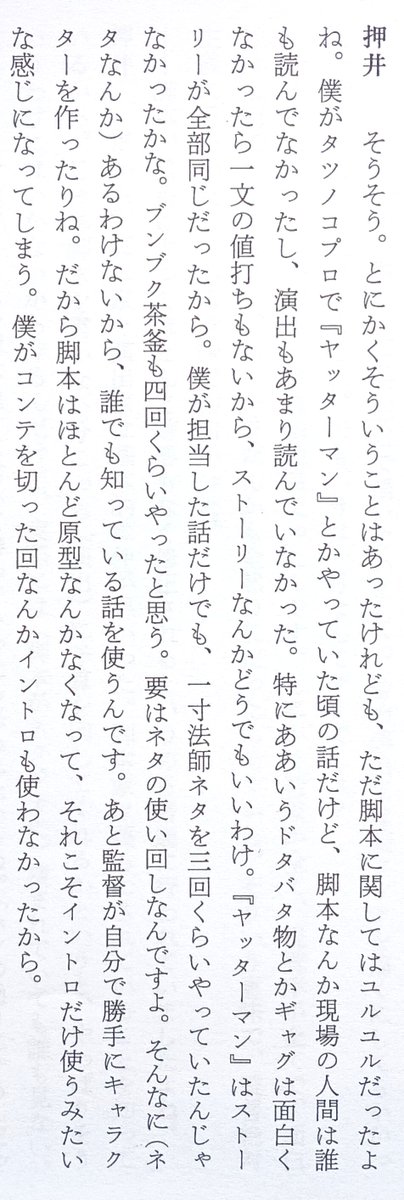 押井　そうそう。とにかくそういうことはあったけれども、ただ脚本に関してはユルユルだったよ
ね。僕がタツノコプロで『ヤッターマン』とかやっていた頃の話だけど、脚本なんか現場の人間は誰
も読んでなかったし、演出もあまり読んでいなかった。特にああいうドタバタ物とかギャグは面白く
なかったら一文の値打ちもないから、ストーリーなんかどうでもいいわけ。『ヤッターマン』はストー
リーが全部同じだったから。僕が担当した話だけでも、一寸法師ネタを三回くらいやっていたんじゃ
なかったかな。ブンブク茶釜も四回くらいやったと思う。要はネタの使い回しなんですよ。そんなに（ネ
タなんか）あるわけないから、誰でも知っている話を使うんです。あと監督が自分で勝手にキャラク
ターを作ったりね。だから脚本はほとんど原型なんかなくなって、それこそイントロだけ使うみたい
な感じになってしまう。僕がコンテを切った回なんかイントロも使わなかったから。